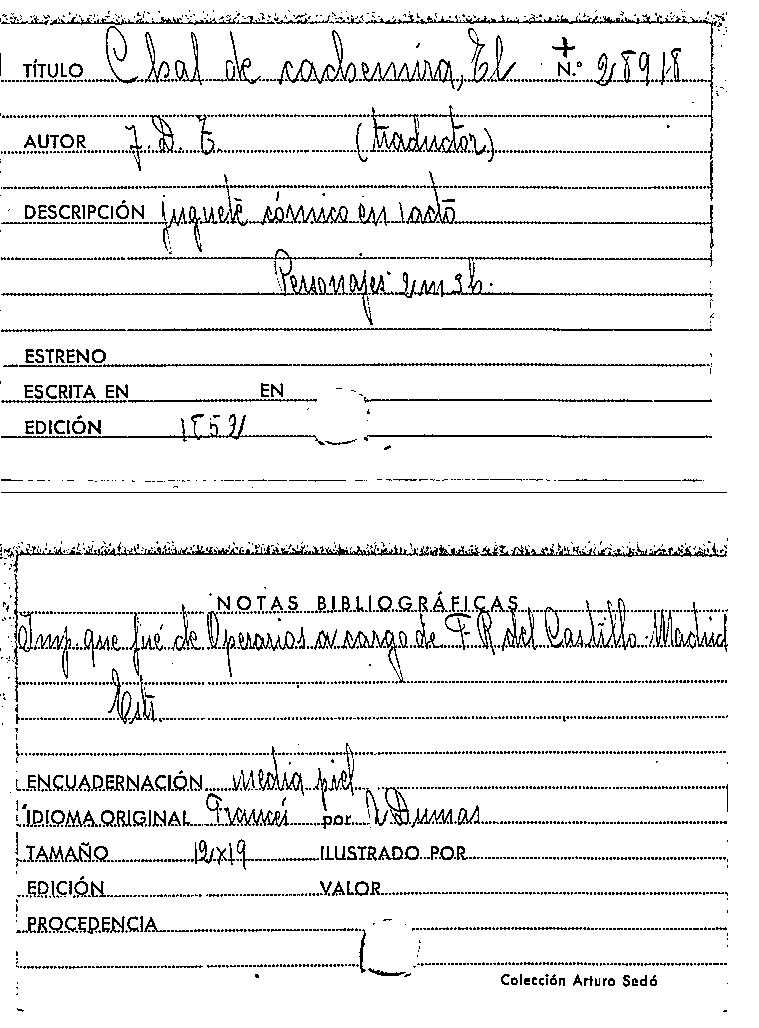 TÍTULO Chal de cachemira, El + N.º 28918
AUTOR J. D. T. (traductor)
DESCRIPCIÓN juguete cómico en 1 acto
Personajes 2 m 3 h.
ESTRENO
ESCRITA EN EN
EDICIÓN 1852
NOTAS BIBLIOGRÁFICAS
Imp. que fué de Operarios a cargo de F. R. del Castillo. Madrid
Estr.
ENCUADERNACIÓN media piel
IDIOMA ORIGINAL Francés por Dumas
TAMAÑO 12x19 ILUSTRADO POR
EDICIÓN VALOR
PROCEDENCIA
Colección Arturo Sedó